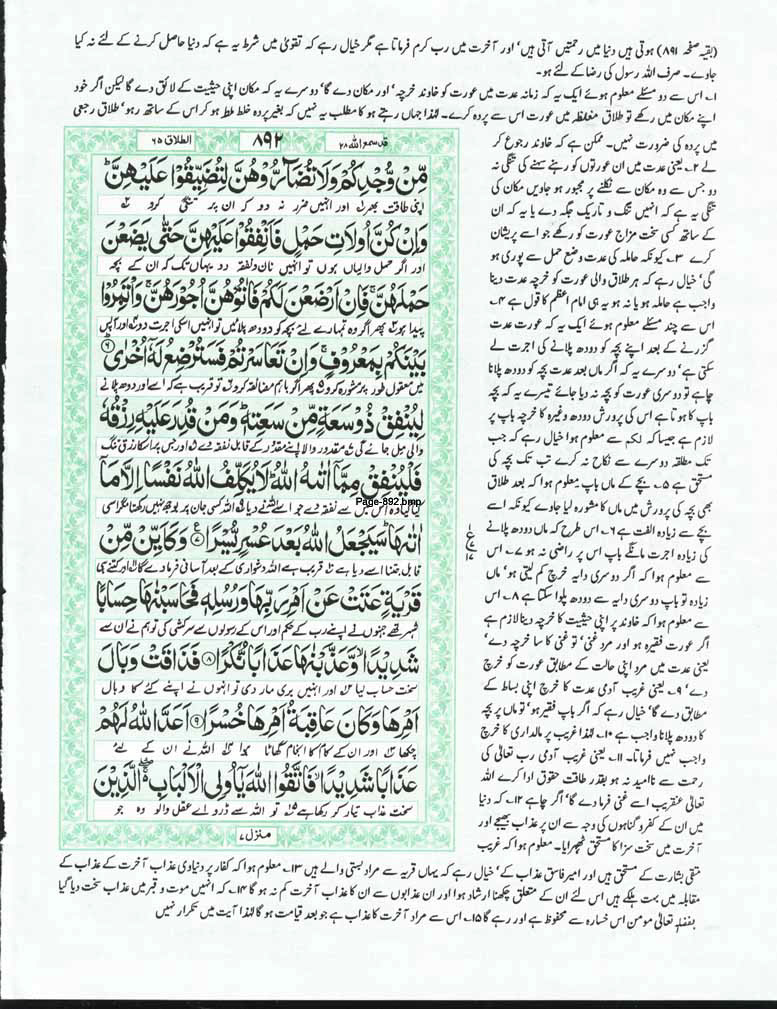 (بقیہ صفحہ ۸۹۱) ہوتی ہیں دنیا میں رحمتیں آتی ہیں' اور آخرت میں رب کرم فرماتا ہے مگر خیال رہے کہ تقویٰ میں شرط یہ ہے کہ دنیا حاصل کرنے کے لئے نہ کیا
جاوے۔ صرف اللہ رسول کی رضا کے لئے ہو۔
۱۔ اس سے دو مسئلے معلوم ہوئے ایک یہ کہ زمانہ عدت میں عورت کو خاوند خرچہ' اور مکان دے گا' دوسرے یہ کہ مکان اپنی حیثیت کے لائق دے گا لیکن اگر خود
اپنے مکان میں رکھے تو طلاق مغلظہ میں عورت اس سے پردہ کرے۔ لہٰذا جہاں رہتے ہو کا مطلب یہ نہیں کہ بغیر پردہ خلط ملط ہو کر اس کے ساتھ رہو' طلاق رجعی
میں پردہ کی ضرورت نہیں۔ ممکن ہے کہ خاوند رجوع کر
لے ۲۔ یعنی عدت میں ان عورتوں کو رہنے سہنے کی تنگی نہ
دو جس سے وہ مکان سے نکلنے پر مجبور ہو جاویں مکان کی
تنگی یہ ہے کہ انہیں تنگ و تاریک جگہ دے یا یہ کہ ان
کے ساتھ کسی سخت مزاج عورت کو رکھے جو اسے پریشان
کرے ۳۔ کیونکہ حاملہ کی عدت وضع حمل سے پوری ہو
گی' خیال رہے کہ ہر طلاق والی عورت کو خرچہ عدت دینا
واجب ہے حاملہ ہو یا نہ ہو یہ ہی امام اعظم کا قول ہے ۴۔
اس سے چند مسئلے معلوم ہوئے ایک یہ کہ عورت عدت
گزرنے کے بعد اپنے بچہ کو دودھ پلانے کی اجرت لے
سکتی ہے' دوسرے یہ کہ اگر ماں بعد عدت بچہ کو دودھ پلانا
چاہے تو دوسری عورت کو بچہ نہ دیا جائے تیسرے یہ کہ بچہ
باپ کا ہوتا ہے اس کی پرورش دودھ وغیرہ کا خرچہ باپ پر
لازم ہے جیسا کہ لکم سے معلوم ہوا خیال رہے کہ جب
تک مطلقہ دوسرے سے نکاح نہ کرے تب تک بچہ کی
مستحق ہے ۵۔ بچے کے ماں باپ معلوم ہوا کہ بعد طلاق
بھی بچہ کی پرورش میں ماں کا مشورہ لیا جاوے کیونکہ اسے
بچے سے زیادہ الفت ہے ۶۔ اس طرح کہ ماں دودھ پلانے
کی زیادہ اجرت مانگے باپ اس پر راضی نہ ہو ۷۔ اس
سے معلوم ہوا کہ اگر دوسری دایہ خرچ کم لیتی ہو' ماں
زیادہ تو باپ دوسری دایہ سے دودھ پلوا سکتا ہے ۸۔ اس
سے معلوم ہوا کہ خاوند پر اپنی حیثیت کا خرچہ دینا لازم ہے
اگر عورت فقیرہ ہو اور مرد غنی' تو غنی کا سا خرچہ دے'
یعنی عدت میں مرد اپنی حالت کے مطابق عورت کو خرچ
دے' ۹۔ یعنی غریب آدمی عدت کا خرچ اپنی بساط کے
مطابق دے گا' خیال رہے کہ اگر باپ فقیر ہو' تو ماں پر بچہ
کا دودھ پلانا واجب ہے ۱۰۔ لہٰذا غریب پر مالداری کا خرچ
واجب نہیں فرماتا۔ ۱۱۔ یعنی غریب آدمی رب تعالیٰ کی
رحمت سے ناامید نہ ہو بقدر طاقت حقوق ادا کرے اللہ
تعالیٰ عنقریب اسے غنی فرما دے گا' اگر چاہے ۱۲۔ کہ دنیا
میں ان کے کفر و گناہوں کی وجہ سے ان پر عذاب بھیجے اور
آخرت میں سخت سزا کا مستحق ٹھہرایا۔ معلوم ہوا کہ غریب
متقی بشارت کے مستحق ہیں اور امیر فاسق عذاب کے' خیال رہے کہ یہاں قریہ سے مراد بستی والے ہیں ۱۳۔ معلوم ہوا کہ کفار پر دنیاوی عذاب آخرت کے عذاب کے
مقابلہ میں بہت ہلکے ہیں اس لئے ان کے متعلق چکھنا ارشاد ہوا اور ان عذابوں سے ان کا عذاب آخرت کم نہ ہو گا ۱۴۔ کہ انہیں موت و قبر میں عذاب سخت دیا گیا
بفضلہ تعالیٰ مومن اس خسارہ سے محفوظ ہے اور رہے گا ۱۵۔ اس سے مراد آخرت کا عذاب ہے جو بعد قیامت ہو گا لہٰذا آیت میں تکرار نہیں
قد سمع اللہ ۲۸ ۸۹۲ الطلاق ۶۵
مِّنْ وُّجْدِكُمْ وَلَا تُضَآرُّوْهُنَّ لِتُضَيِّقُوْا عَلَيْهِنَّ ؕ
اپنی طاقت بھر اور انہیں ضرر نہ دو کہ ان پر تنگی کرو
وَاِنْ كُنَّ اُولَاتِ حَمْلٍ فَاَنْفِقُوْا عَلَيْهِنَّ حَتّٰى يَضَعْنَ
اور اگر حمل والیاں ہوں تو انہیں نان و نفقہ دو یہاں تک کہ ان کے بچہ
حَمْلَهُنَّ ۚ فَاِنْ اَرْضَعْنَ لَكُمْ فَاٰتُوْهُنَّ اُجُوْرَهُنَّ ۚ وَاْتَمِرُوْا
پیدا ہو پھر اگر وہ تمہارے لئے بچہ کو دودھ پلائیں تو انہیں اسکی اجرت دو اور آپس
بَيْنَكُمْ بِمَعْرُوْفٍ ۚ وَاِنْ تَعَاسَرْتُمْ فَسَتُرْضِعُ لَهٗۤ اُخْرٰى ؕ ۶
میں معقول طور پر مشورہ کرو پھر اگر باہم مضائقہ کرو تو قریب ہے کہ اسے اور دودھ پلانے
لِيُنْفِقْ ذُوْ سَعَةٍ مِّنْ سَعَتِهٖ ؕ وَمَنْ قُدِرَ عَلَيْهِ رِزْقُهٗ
والی مل جائے گی مقدور والا اپنے مقدور کے قابل نفقہ دے اور جس پر اسکا رزق تنگ
فَلْيُنْفِقْ مِمَّاۤ اٰتٰىهُ اللّٰهُ ؕ لَا يُكَلِّفُ اللّٰهُ نَفْسًا اِلَّا مَاۤ
Page-892.bmp
کیا گیا وہ اس میں سے نفقہ دے جو اسے اللہ نے دیا اللہ کسی جان پر بوجھ نہیں رکھتا مگر اسی
اٰتٰىهَا ؕ سَيَجْعَلُ اللّٰهُ بَعْدَ عُسْرٍ يُّسْرًا ۷ وَكَاَيِّنْ مِّنْ
قابل جتنا اسے دیا ہے قریب ہے اللہ دشواری کے بعد آسانی فرما دے گا اور کتنے ہی
قَرْيَةٍ عَتَتْ عَنْ اَمْرِ رَبِّهَا وَرُسُلِهٖ فَحَاسَبْنٰهَا حِسَابًا
شہر تھے جنہوں نے اپنے رب کے حکم اور اس کے رسولوں سے سرکشی کی تو ہم نے ان سے
شَدِيْدًا ۙ وَّعَذَّبْنٰهَا عَذَابًا نُّكْرًا ۸ فَذَاقَتْ وَبَالَ
سخت حساب لیا اور انہیں بری مار دی تو انہوں نے اپنے کئے کا وبال
اَمْرِهَا وَكَانَ عَاقِبَةُ اَمْرِهَا خُسْرًا ۹ اَعَدَّ اللّٰهُ لَهُمْ
چکھا اور ان کے کام کا انجام گھاٹا ہوا اللہ نے ان کے لئے
عَذَابًا شَدِيْدًا ۙ فَاتَّقُوا اللّٰهَ يٰۤاُولِى الْاَلْبَابِ ۛۖ الَّذِيْنَ
سخت عذاب تیار کر رکھا ہے تو اللہ سے ڈرو اے عقل والو وہ جو
منزل ۷